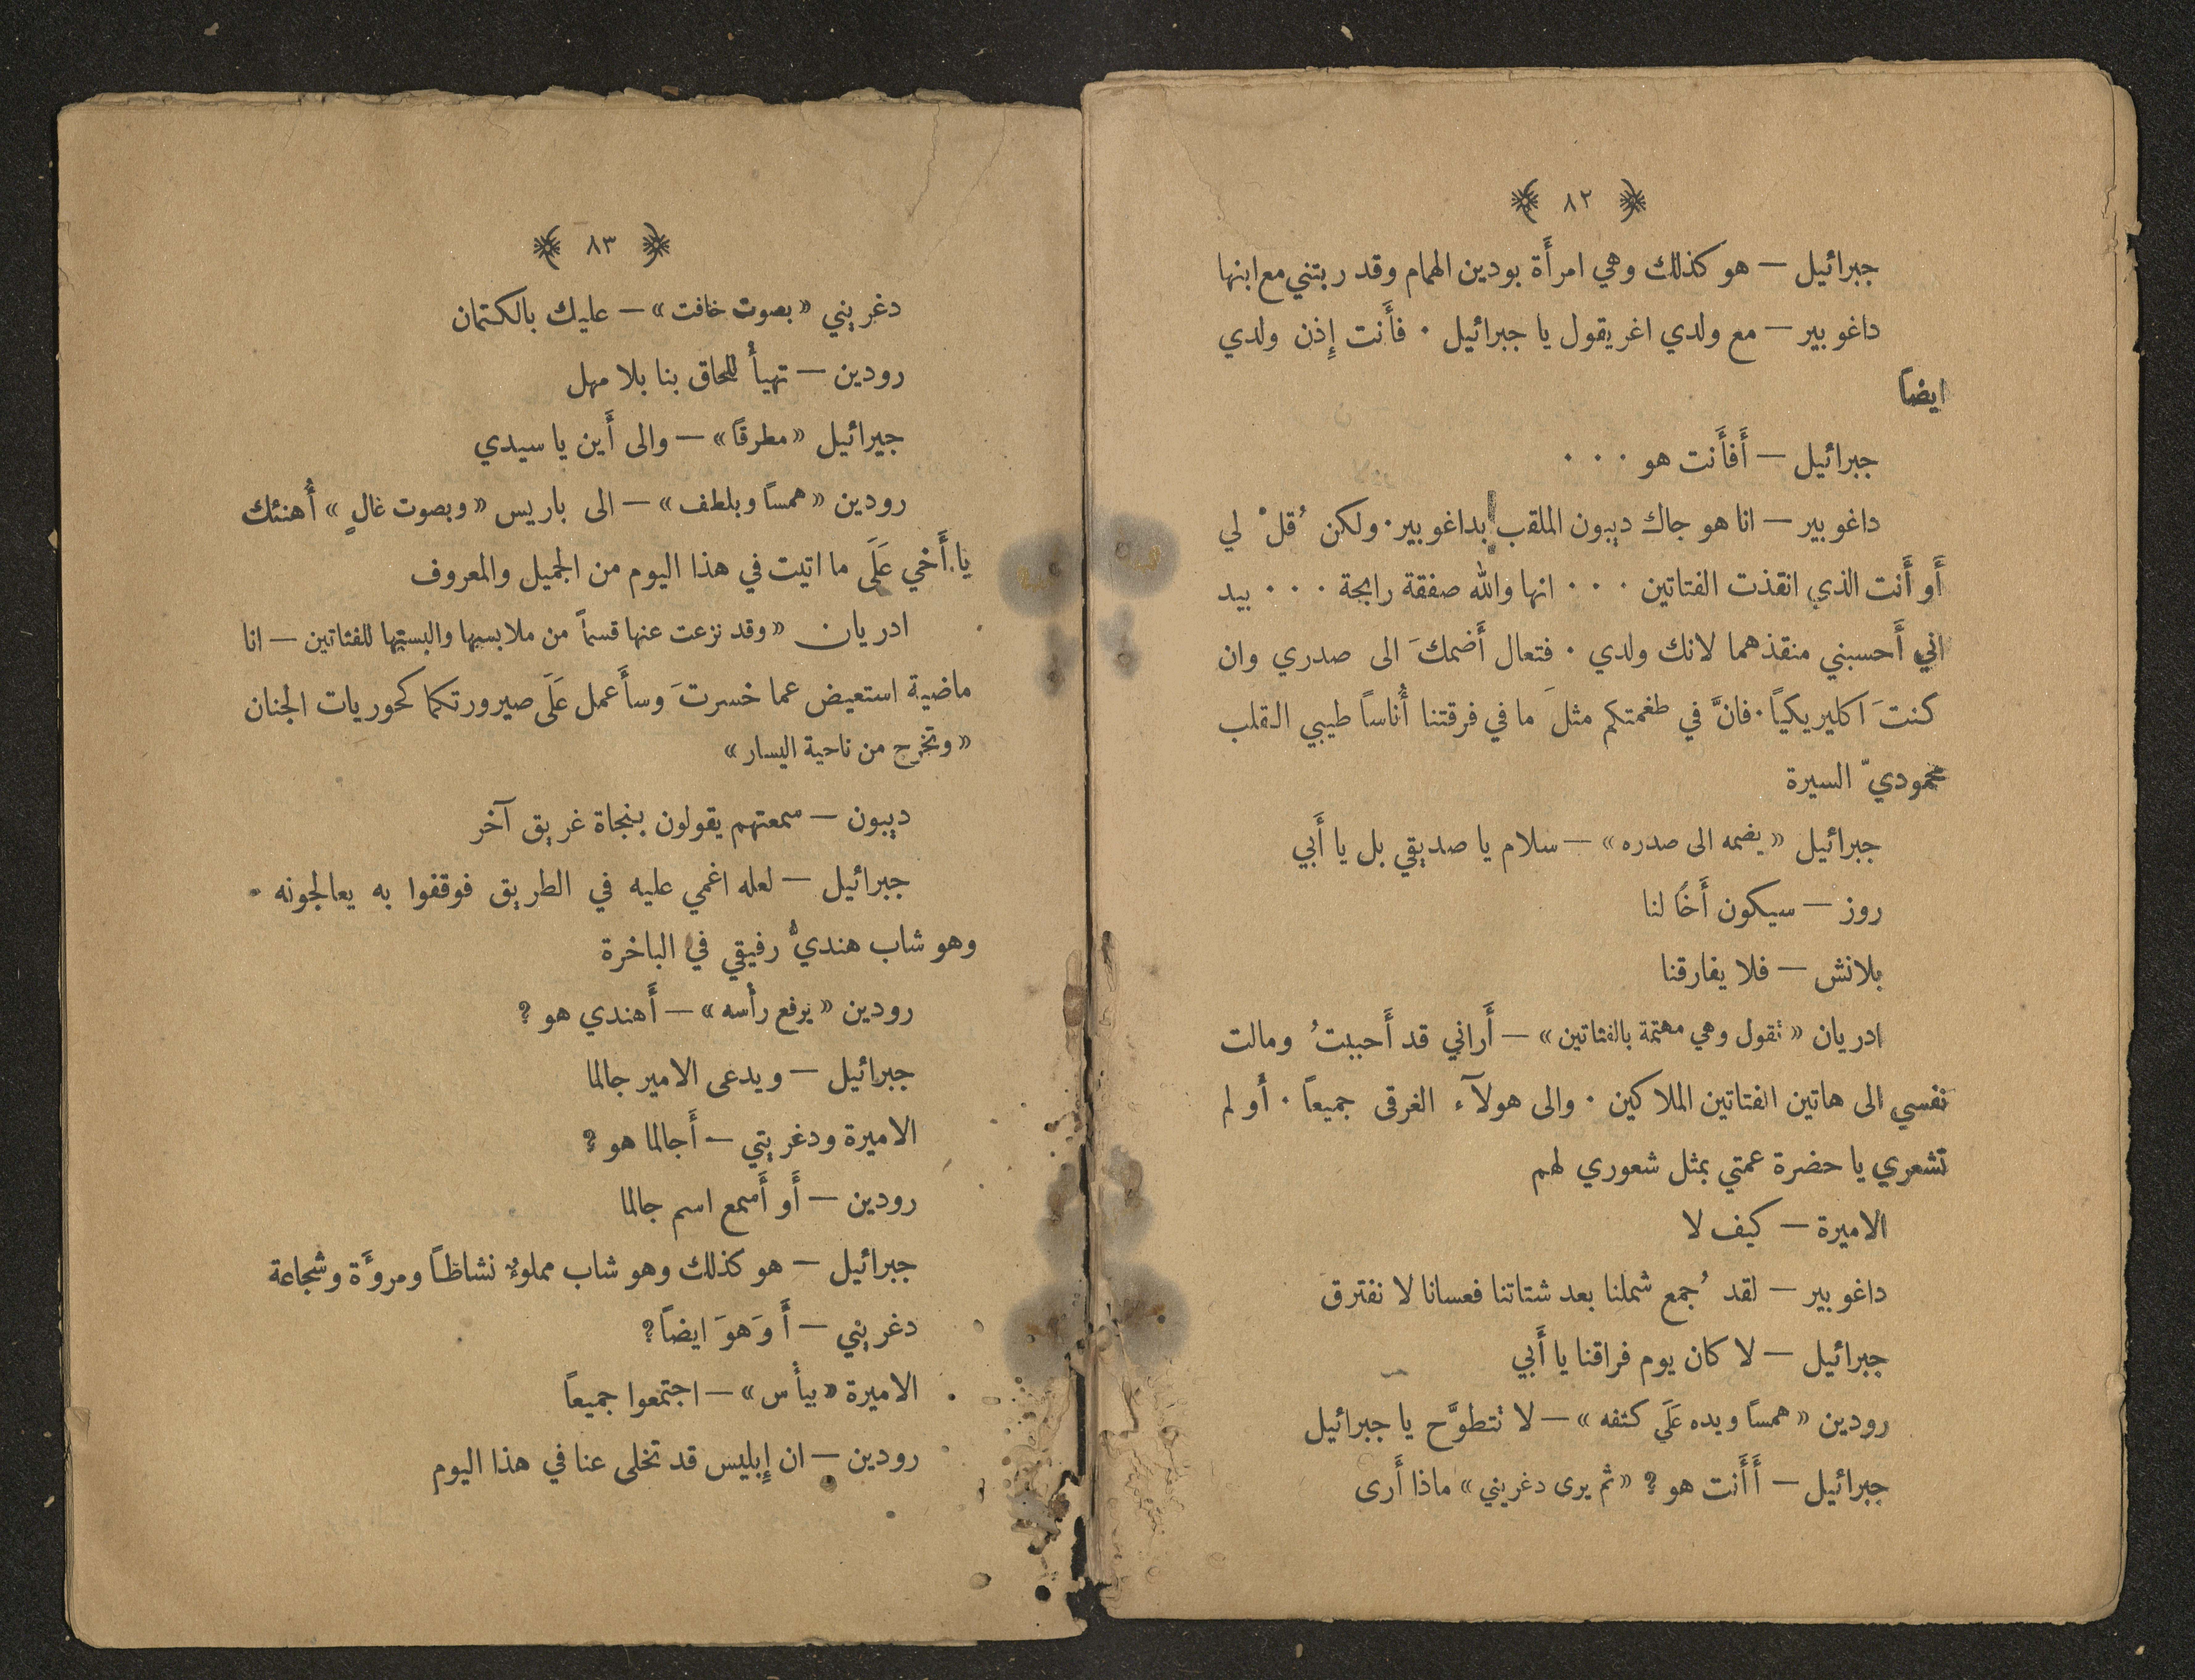 ٨٢
جبرائيل — هو كذلك وهي امرأَة بودين الهمام وقد ربتني مع ابنها
داغوبير — مع ولدي اغريقول يا جبرائيل . فأَنت إِذن ولدي
ايضاً
جبرائيل — أَفأَنت هو . . .
داغوبير — انا هو جاك ديبون الملقب بداغوبير. ولكن ُقلْ لي
أَو أَنت الذي انقذت الفتاتين . . . انها والله صفقة رابحة . . . بيد
اني أَحسبني منقذهما لانك ولدي . فتعال أَضمكَ الى صدري وان
كنتَ اكليريكيًا. فانَّ في طغمتكم مثلَ ما في فرقتنا أُناسًا طيبي القلب
محموديّ السيرة
جبرائيل «يضمه الى صدره» — سلام يا صديقي بل يا أَبي
روز — سيكون أَخًا لنا
بلانش — فلا يفارقنا
ادريان «تقول وهي مهتمة بالفتاتين» — أَراني قد أَحببتُ ومالت
نفسي الى هاتين الفتاتين الملاكين . والى هولآء الغرقى جميعاً . أَو لم
تشعري يا حضرة عمتي بمثل شعوري لهم
الاميرة — كيف لا
داغوبير — لقد ُجمع شملنا بعد شتاتنا فعسانا لا نفترق
جبرائيل — لا كان يوم فراقنا يا أَبي
رودين «همسًا ويده عَلَى كتفه» — لا تتطوَّح يا جبرائيل
جبرائيل — أَأَنت هو ? «ثم يرى دغريني» ماذا أَرى
٨٣
دغريني «بصوت خافت» — عليك بالكتمان
رودين — تهيأْ للحاق بنا بلا مهل
جبرائيل «مطرقًا» — والى أَين يا سيدي
رودين «همسًا وبلطف» — الى باريس «وبصوت عالٍ» أُهنئك
يا أَخي عَلَى ما اتيت في هذا اليوم من الجميل والمعروف
ادريان «وقد نزعت عنها قسمًا من ملابسها والبستها للفتاتين — انا
ماضية استعيض عما خسرتَ وسأَعمل عَلَى صيرورتكما كحوريات الجنان
«وتخرج من ناحية اليسار»
ديبون — سمعتهم يقولون بنجاة غريق آخر
جبرائيل — لعله اغمي عليه في الطريق فوقفوا به يعالجونه .
وهو شاب هنديٌّ رفيقي في الباخرة
رودين «يرفع رأسه» — أَهندي هو ?
جبرائيل — ويدعى الامير جالما
الاميرة ودغريتي — أَجالما هو ?
رودين — أَو أَسمع اسم جالما
جبرائيل — هو كذلك وهو شاب مملوءٌ نشاطًا ومروءَة وشجاعة
دغريني — أَ وَهوَ ايضاً?
الاميرة «بيأْس» — اجتمعوا جميعاً
رودين — ان إِبليس قد تخلى عنا في هذا اليوم